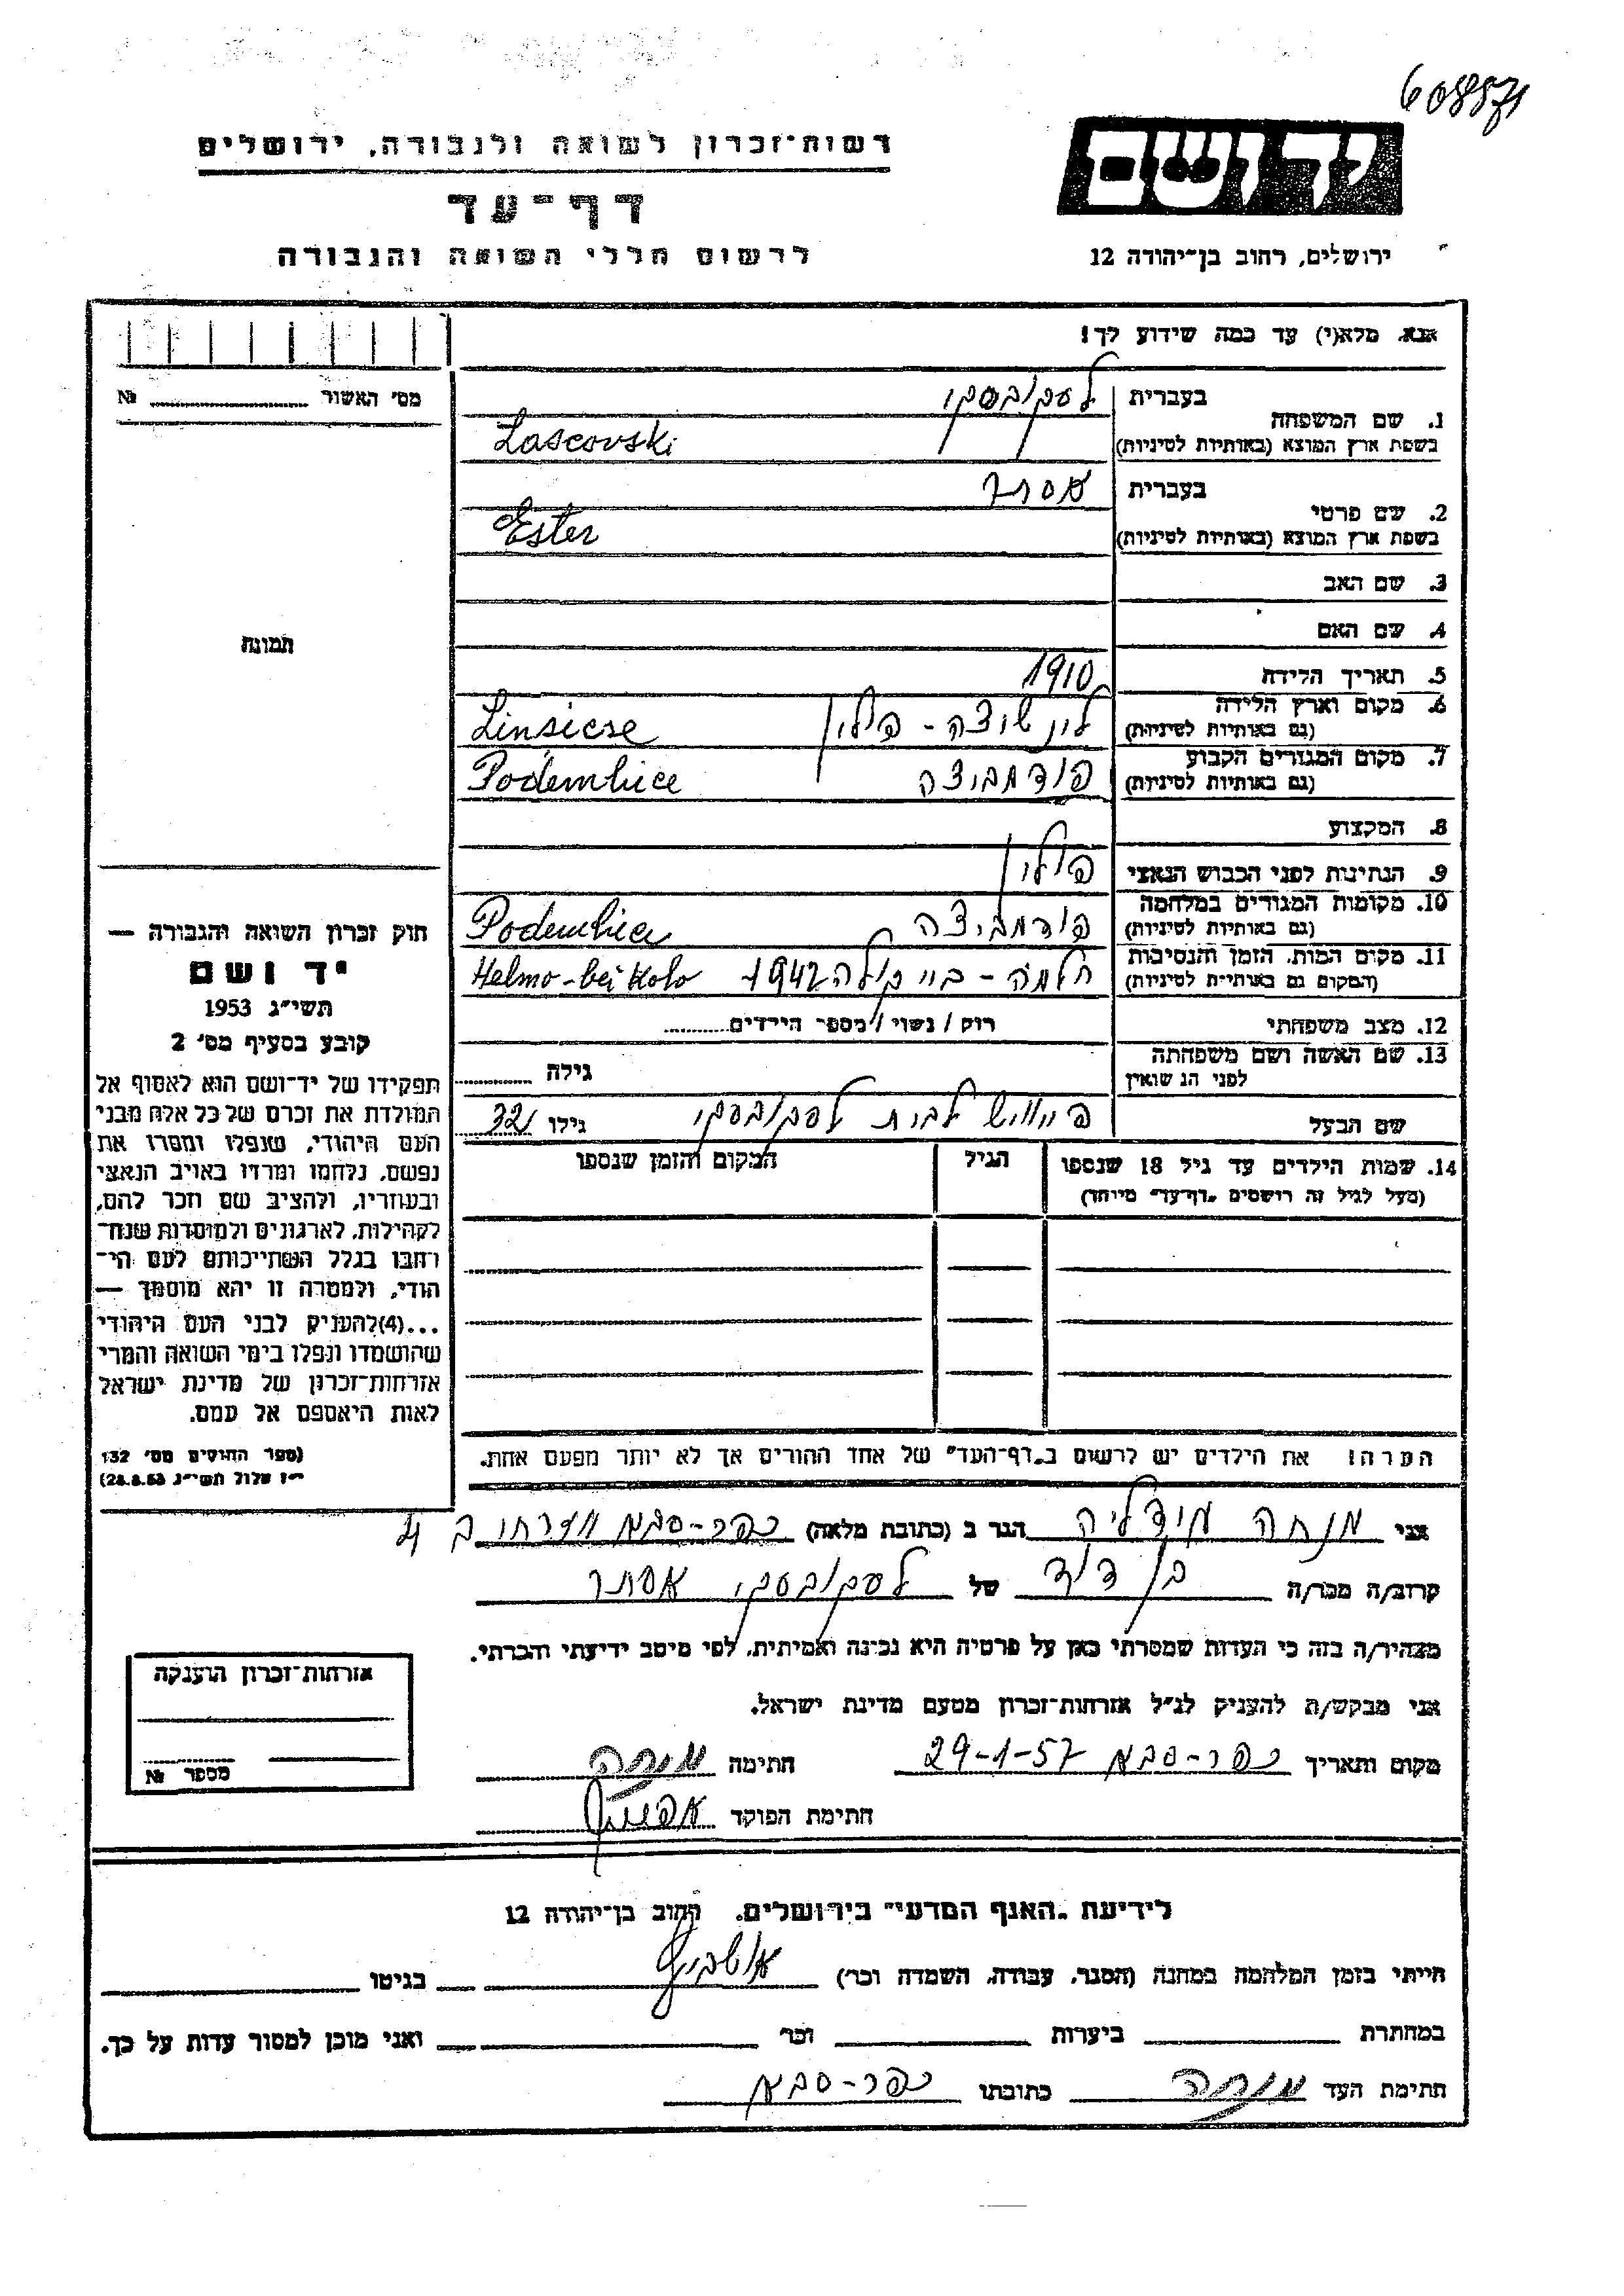 608571
יד ושם
רשות־זכרון לשואה ולגבורה, ירושלים
דף־עד
לרשום חללי השואה והגבורה
ירושלים, רחוב בן־יהודה 12
אנא, מלא(י) עד כמה שידוע לך!
מס׳ האשור № ............
1. שם המשפחה
בעברית לסקובסקי
בשפת ארץ המוצא (באותיות לטיניות) Lascovski
2. שם פרטי
בעברית אסתר
בשפת ארץ המוצא (באותיות לטיניות) Ester
3. שם האב
4. שם האם
תמונה
5. תאריך הלידה 1910
6. מקום וארץ הלידה
(גם באותיות לטיניות) לונשיצה - פולין Linsicse
7. מקום המגורים הקבוע
(גם באותיות לטיניות) פודמביצה Podembice
8. המקצוע
9. הנתינות לפני הכבוש הנאצי פולין
10. מקומות המגורים במלחמה
(גם באותיות לטיניות) פודמביצה
11. מקום המות, הזמן והנסיבות
(המקום גם באותיות לטיניות) חלמה - ביי קולה 1942 Helmo-bei Kolo
12. מצב משפחתי רוק / נשוי / מספר הילדים..........
13. שם האשה ושם משפחתה
לפני הנשואין גילה ..........
שם הבעל לבית לסקובסקי גילו 32
14. שמות הילדים עד גיל 18 שנספו
(מעל לגיל זה רושמים „דף־עד״ מיוחד)
הגיל
המקום והזמן שנספו
חוק זכרון השואה והגבורה —
יד ושם
תשי״ג 1953
קובע בסעיף מס׳ 2
תפקידו של יד־ושם הוא לאסוף אל
המולדת את זכרם של כל אלה מבני
העם היהודי, שנפלו ומסרו את
נפשם, נלחמו ומרדו באויב הנאצי
ובעוזריו, ולהציב שם וזכר להם,
לקהילות, לארגונים ולמוסדות שנח־
רחבו בגלל השתייכותם לעם הי־
הודי, ולמטרה זו יהא מוסמך —
...(4)להעניק לבני העם היהודי
שהושמדו ונפלו בימי השואה והמרי
אזרחות־זכרון של מדינת ישראל
לאות היאספם אל עמם.
(ספר החוקים מס׳ 132
י״ז אלול תשי״ג 28.8.53)
הערה! את הילדים יש לרשום ב„דף־העד״ של אחד ההורים אך לא יותר מפעם אחת.
אני מנחה הגר ב (כתובת מלאה) כפר-סבא
קרוב/ה מכר/ה בן דוד של לסקובסקי אסתר
מצהיר/ה בזה כי העדות שמסרתי כאן על פרטיה היא נכונה ואמיתית, לפי מיטב ידיעתי והכרתי.
אני מבקש/ת להעניק לנ״ל אזרחות־זכרון מטעם מדינת ישראל.
מקום ותאריך כפר-סבא 29-1-57 חתימה מנחה
חתימת הפוקד
אזרחות־זכרון הוענקה
מספר №
לידיעת „האגף המדעי״ בירושלים, רחוב בן־יהודה 12
הייתי בזמן המלחמה במחנה (הסגר, עבודה, השמדה וכו׳) אושביץ בגיטו
במחתרת ביערות וכו׳ ואני מוכן למסור עדות על כך.
חתימת העד מנחה כתובתו כפר-סבא